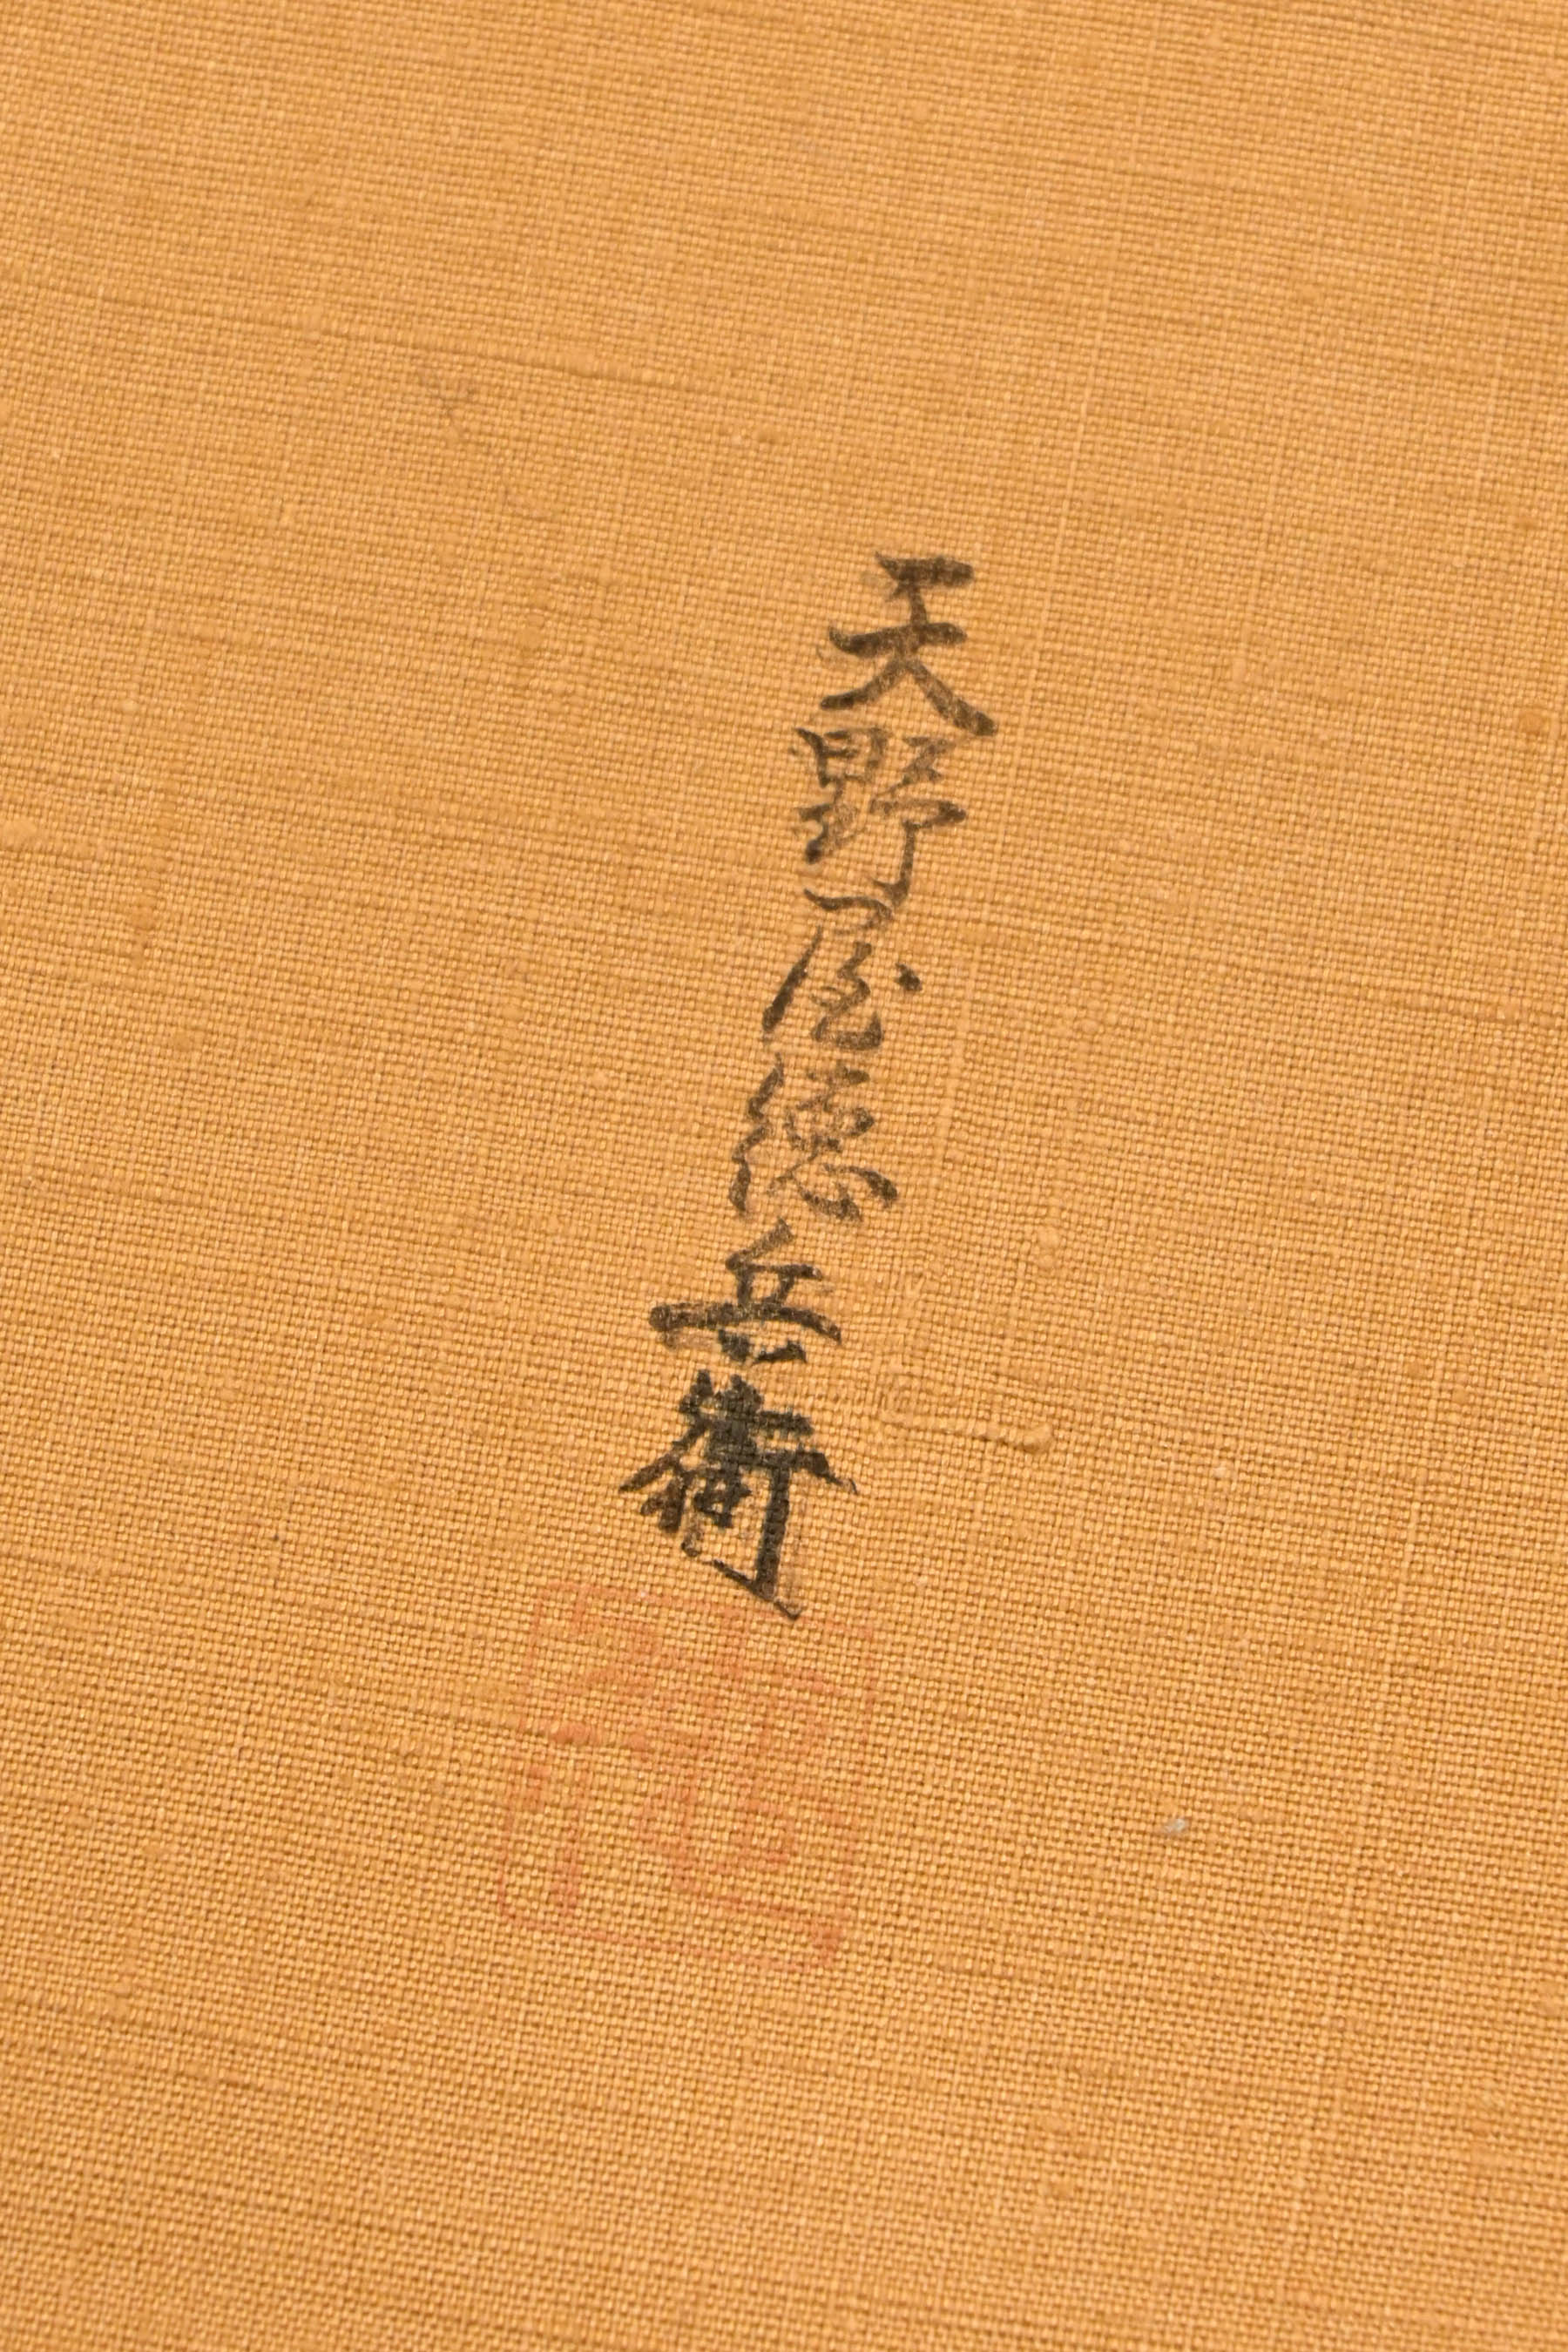 天野屋徳兵衛